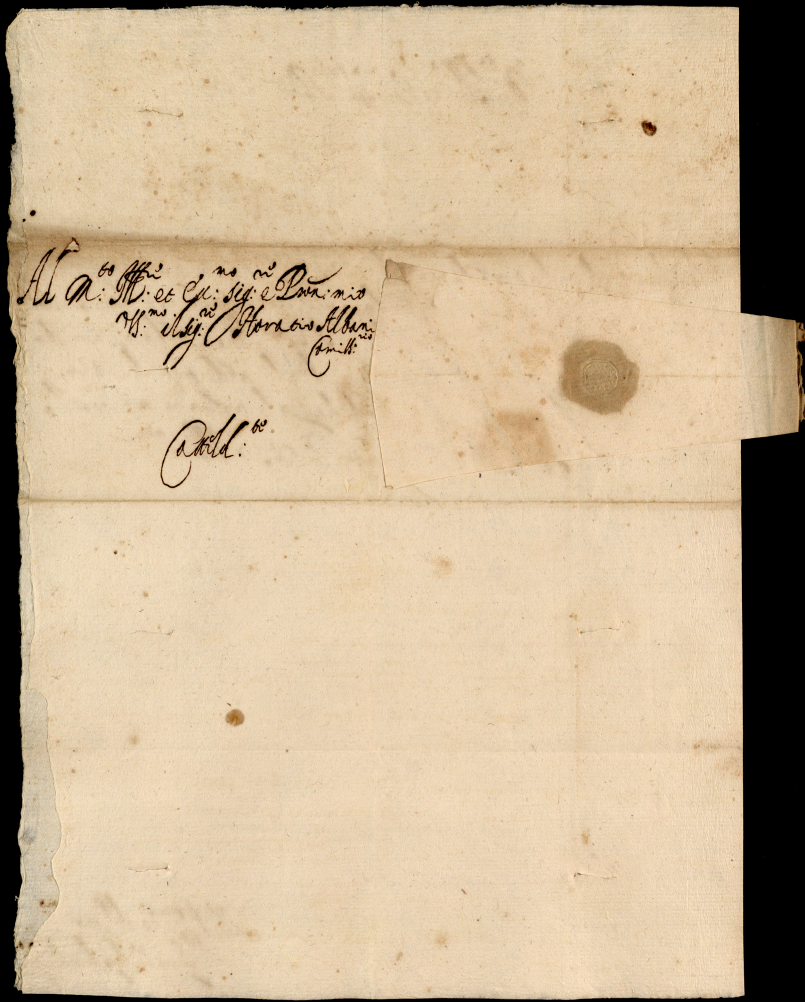 Al M.to Ill.re et Ecc.mo sig.re e Pron: mio
Oss.mo il sig.re Horatio Albani
Comiss.rio